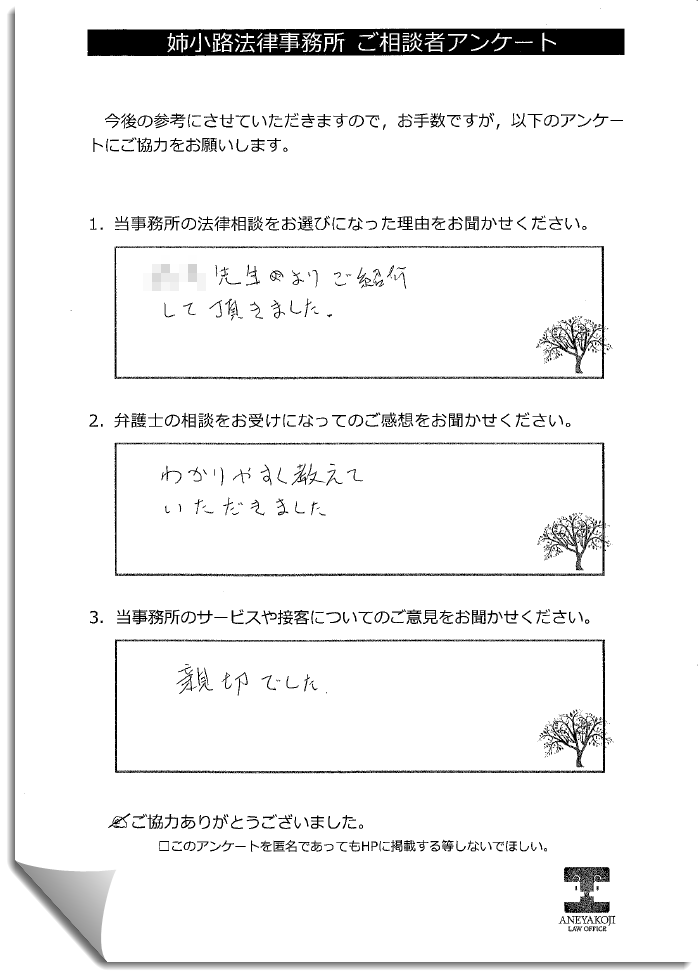 姉小路法律事務所 ご相談者アンケート
今後の参考にさせていただきますので，お手数ですが，以下のアンケー
トにご協力をお願いします。
1. 当事務所の法律相談をお選びになった理由をお聞かせください。
先生より ご紹介
して頂きました.
2. 弁護士の相談をお受けになってのご感想をお聞かせください。
わかりやすく教えて
いただきました
3. 当事務所のサービスや接客についてのご意見をお聞かせください。
親切でした.
✍ご協力ありがとうございました。
□このアンケートを匿名であってもHPに掲載する等しないでほしい。
ANEYAKOJI
LAW OFFICE